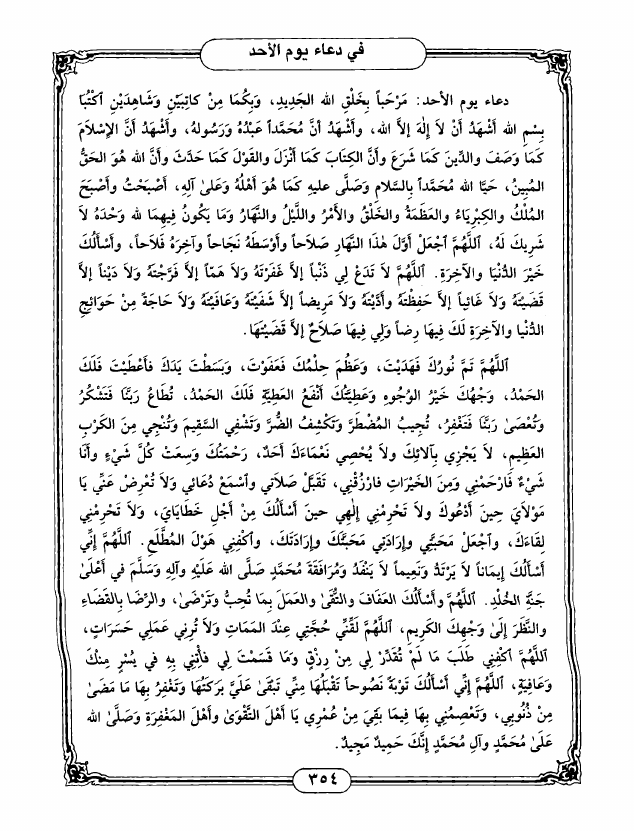 في دعاء يوم الأحد
دعاء يوم الأحد: مَرْحَباً بِخَلْقِ الله الجَدِيدِ، وَبِكُمَا مِنْ كاتِبَيْنِ وَشَاهِدَيْنِ اَكْتُبَا
بِسْمِ الله أَشْهَدُ أَنْ لاَ إِلٰهَ إلاَّ الله، وأَشْهَدُ أنَّ مُحَمَّداً عَبْدُهُ وَرَسُولهُ، وأَشْهَدُ أنَّ الإِسْلاَمَ
كَمَا وَصَفَ والدِّينَ كَمَا شَرَعَ وأنَّ الكِتَابَ كَمَا أَنْزَلَ والقَوْلَ كَمَا حَدَّثَ وأنَّ الله هُوَ الحَقُّ
المُبِينُ، حَيَّا الله مُحَمَّداً بِالسَّلاَمِ وَصَلَّى عليهِ كَمَا هُوَ أَهْلُهُ وَعَلىٰ آلِهِ، أَصْبَحْتُ وأَصْبَحَ
المُلْكُ والكِبْرِيَاءُ والعَظَمَةُ والخَلْقُ والأَمْرُ واللَّيْلُ والنَّهَارُ وَمَا يَكُونُ فِيهِمَا لله وَحْدَهُ لاَ
شَرِيكَ لَهُ، اَللَّهُمَّ اَجْعَلْ أَوَّلَ هٰذا النَّهَارِ صَلاَحاً وأَوْسَطَهُ نَجَاحاً وآخِرَهُ فَلاَحاً، وأَسْأَلُكَ
خَيْرَ الدُّنْيَا والآخِرَةِ. اَللَّهُمَّ لاَ تَدَعْ لِي ذَنْباً إلاَّ غَفَرْتَهُ وَلاَ هَمّاً إلاَّ فَرَّجْتَهُ وَلاَ دَيْناً إلاَّ
قَضَيْتَهُ وَلاَ غَائِباً إلاَّ حَفِظْتَهُ وأَدَّيْتَهُ وَلاَ مَرِيضاً إلاَّ شَفَيْتَهُ وَعَافَيْتَهُ وَلاَ حَاجَةً مِنْ حَوَائِجِ
الدُّنْيَا والآخِرَةِ لَكَ فِيهَا رِضاً وَلِي فِيهَا صَلاَحٌ إلاَّ قَضَيْتَهَا.
اَللَّهُمَّ تَمَّ نُورُكَ فَهَدَيْتَ، وَعَظُمَ حِلْمُكَ فَعَفَوْتَ، وَبَسَطْتَ يَدَكَ فأَعْطَيْتَ فَلَكَ
الحَمْدُ، وَجْهُكَ خَيْرُ الوُجُوهِ وَعَطِيَّتُكَ أَنْفَعُ العَطِيَّةِ فَلَكَ الحَمْدُ، تُطَاعُ رَبَّنَا فَتَشْكُرُ
وَتُعْصَىٰ رَبَّنَا فَتَغْفِرُ، تُجِيبُ المُضْطَرَّ وَتَكْشِفُ الضُّرَّ وَتَشْفِي السَّقِيمَ وَتُنْجِي مِنَ الكَرْبِ
العَظِيمِ، لاَ يَجْزِي بِآلائِكَ ولاَ يُحْصِي نَعْمَاءَكَ أَحَدٌ، رَحْمَتُكَ وَسِعَتْ كُلَّ شَيْءٍ وأَنَا
شَيْءٌ فَارْحَمْنِي وَمِنَ الخَيْرَاتِ فارْزُقْنِي، تَقَبَّلْ صَلاَتي وأَسْمَعْ دُعَائي وَلاَ تُعْرِضْ عَنِّي يَا
مَوْلاَيَ حِينَ أَدْعُوكَ ولاَ تَحْرِمْنِي إِلٰهِي حينَ أَسْأَلُكَ مِنْ أَجْلِ خَطَايَايَ، وَلاَ تَحْرِمْنِي
لِقَاءَكَ، واَجْعَلْ مَحَبَّتِي وإِرَادَتِي مَحَبَّتَكَ وإِرَادَتَكَ، واَكْفِنِي هَوْلَ المُطَّلَعِ. اَللَّهُمَّ إِنِّي
أَسْأَلُكَ إِيمَاناً لاَ يَرْتَدُّ وَنَعِيماً لاَ يَنْفَدُ وَمُرَافَقَةَ مُحَمَّدٍ صَلَّى الله عَلَيْهِ وآلِهِ وَسَلَّمَ في أَعْلَىٰ
جَنَّةِ الخُلْدِ. اَللَّهُمَّ وأَسْأَلُكَ العَفَافَ والتُّقَىٰ والعَمَلَ بِمَا تُحِبُّ وَتَرْضَىٰ، والرِّضَا بِالقَضَاءِ
والنَّظَرَ إلىٰ وَجْهِكَ الكَرِيمِ، اَللَّهُمَّ لَقِّنِّي حُجَّتِي عِنْدَ المَمَاتِ وَلاَ تُرِنِي عَمَلِي حَسَرَاتٍ،
اَللَّهُمَّ اَكْفِنِي طَلَبَ مَا لَمْ تُقَدِّرْ لِي مِنْ رِزْقٍ وَمَا قَسَمْتَ لِي فأْتِنِي بِهِ في يُسْرٍ مِنْكَ
وَعَافِيَةٍ، اَللَّهُمَّ إِنِّي أَسْأَلُكَ تَوْبَةً نَصُوحاً تَقْبَلُهَا مِنِّي تَبْقَىٰ عَلَيَّ بَرَكَتُهَا وَتَغْفِرُ بِهَا مَا مَضَىٰ
مِنْ ذُنُوبِي، وَتَعْصِمُنِي بِهَا فِيمَا بَقِيَ مِنْ عُمْرِي يَا أَهْلَ التَّقْوَىٰ وأَهْلَ المَغْفِرَةِ وَصَلَّىٰ الله
عَلَىٰ مُحَمَّدٍ وآلِ مُحَمَّدٍ إِنَّكَ حَمِيدٌ مَجِيدٌ.
٣٥٤